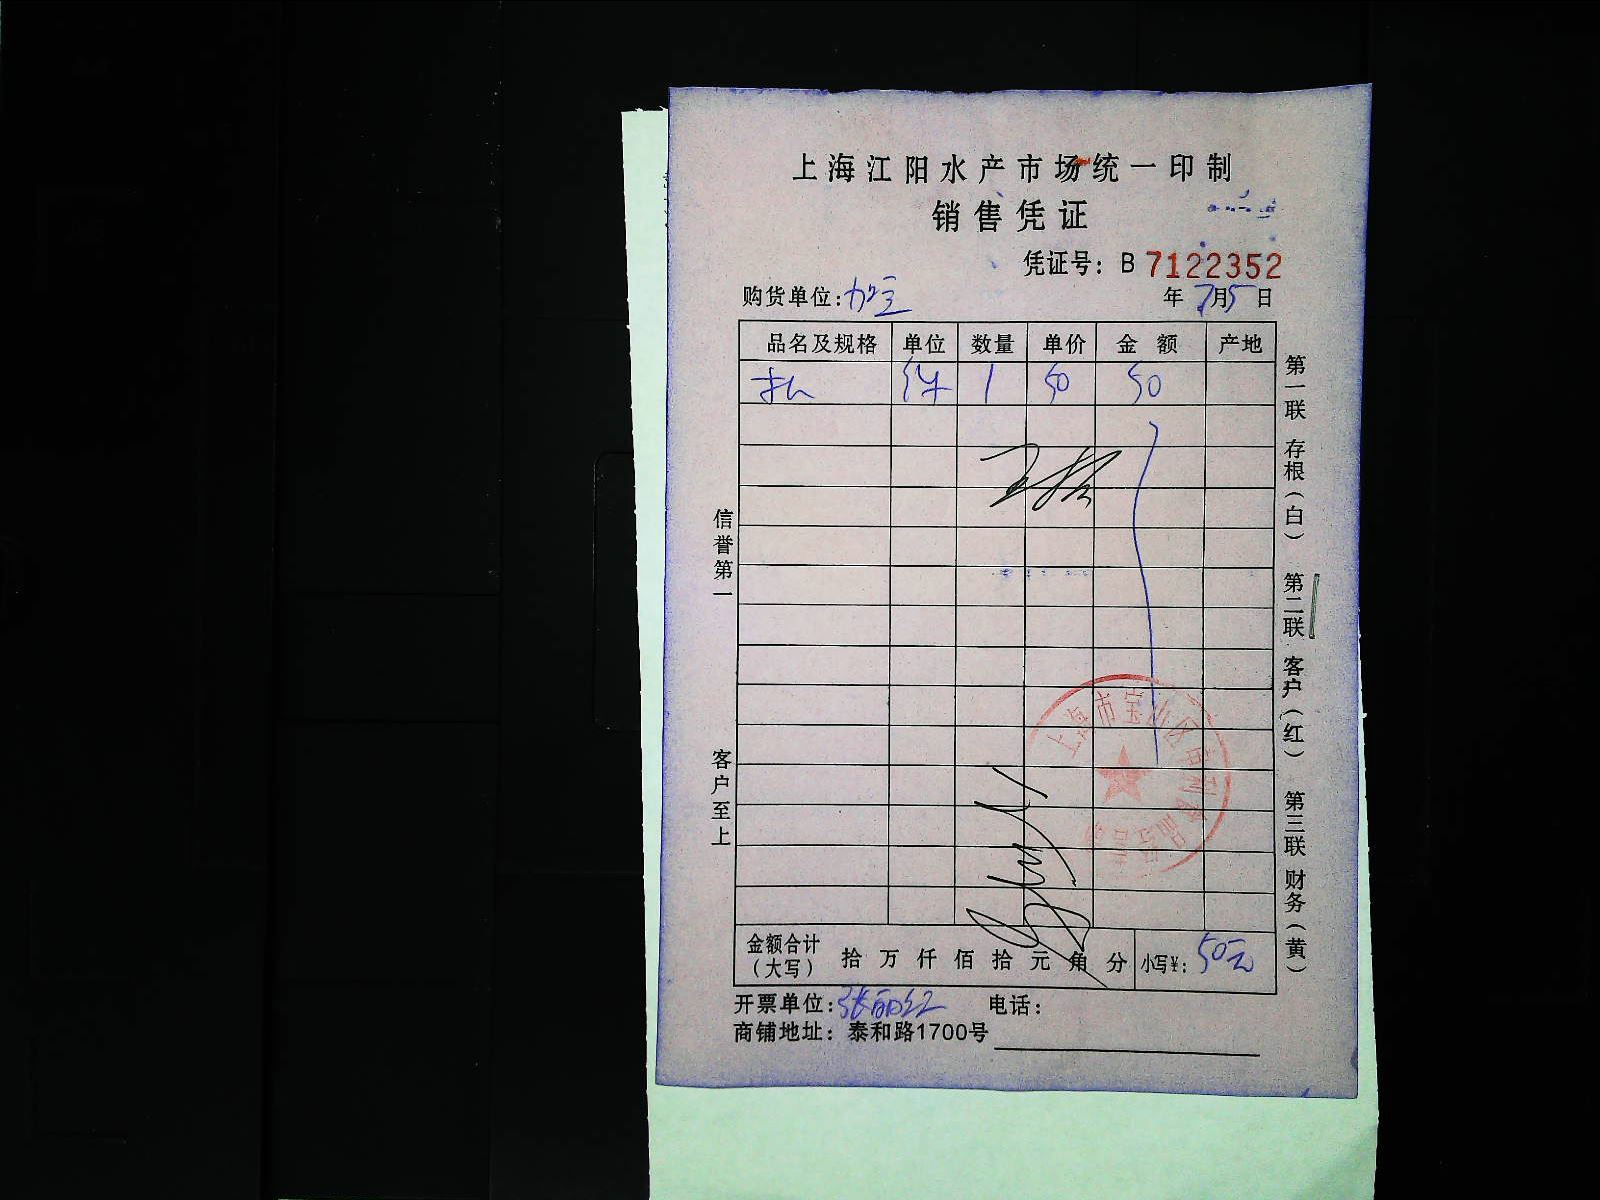 上海江阳水产市场统一印制
销售凭证
凭证号：B 7122352
购货单位：
年 7月5日
品名及规格 单位 数量 单价 金额 产地
件 1 50 50
信誉第一
客户至上
第一联 存根（白） 第二联 客户（红） 第三联 财务（黄）
上海市宝山区
金额合计（大写） 拾 万 仟 佰 拾 元 角 分 小写¥：50元
开票单位：张丽红 电话：
商铺地址：泰和路1700号